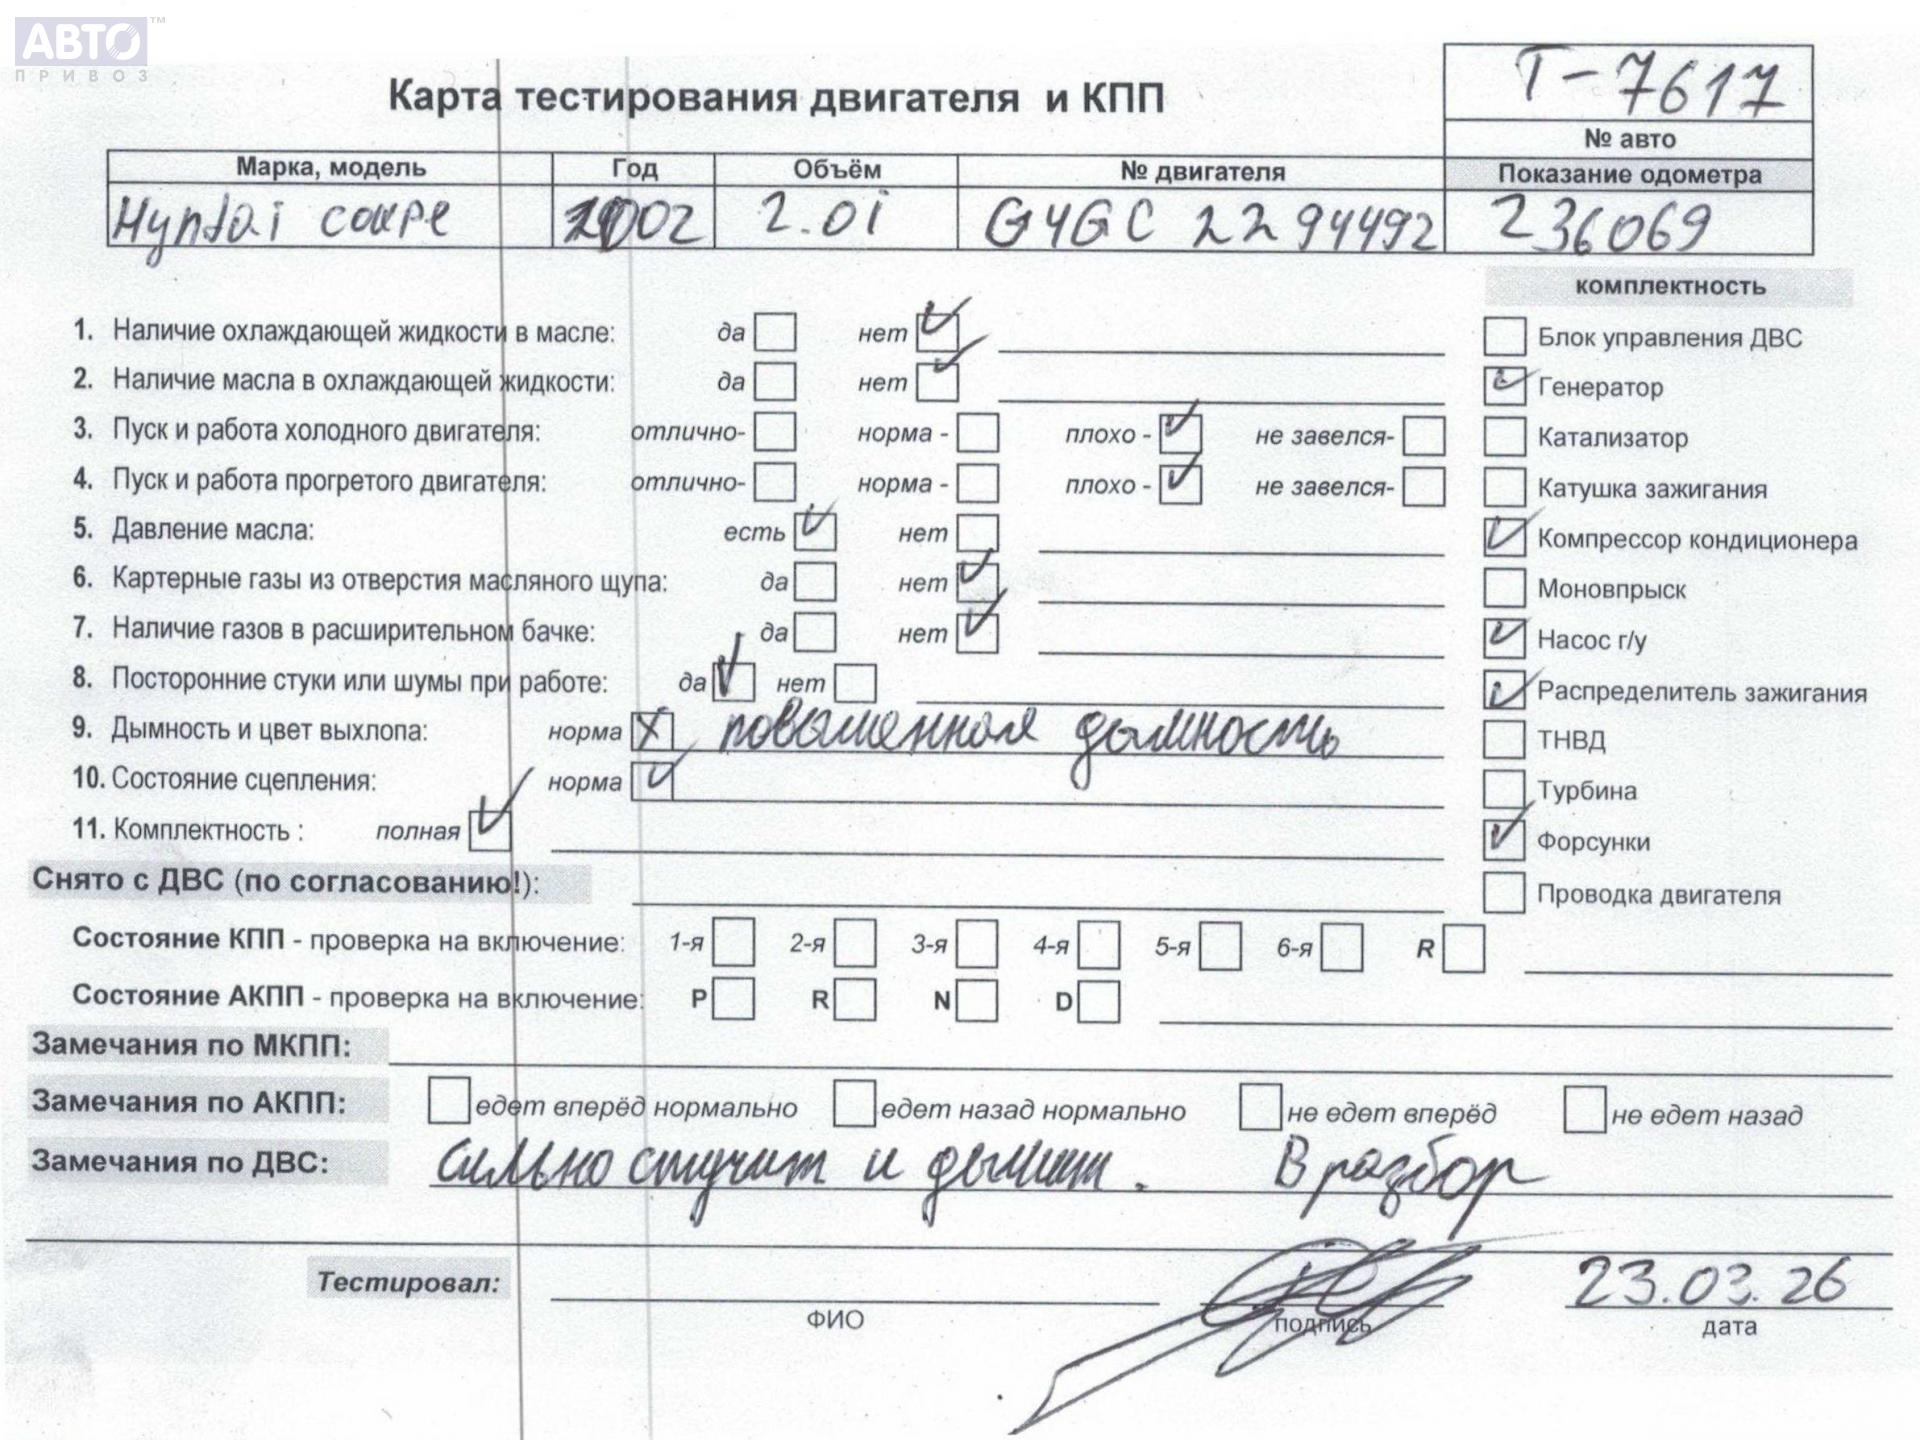 АВТО™
ПРИВОЗ
Карта тестирования двигателя и КПП
Т-7617
№ авто
Марка, модель Год Объём № двигателя Показание одометра
Hyndai coupe 2002 2.0i G4GC 2294492 236069
комплектность
1. Наличие охлаждающей жидкости в масле: да нет ✓
Блок управления ДВС
2. Наличие масла в охлаждающей жидкости: да нет ✓
✓ Генератор
3. Пуск и работа холодного двигателя: отлично- норма - плохо - ✓ не завелся-
Катализатор
4. Пуск и работа прогретого двигателя: отлично- норма - плохо - ✓ не завелся-
Катушка зажигания
5. Давление масла: есть ✓ нет
✓ Компрессор кондиционера
6. Картерные газы из отверстия масляного щупа: да нет ✓
Моновпрыск
7. Наличие газов в расширительном бачке: да нет ✓
✓ Насос г/у
8. Посторонние стуки или шумы при работе: да ✓ нет
✓ Распределитель зажигания
9. Дымность и цвет выхлопа: норма X повышенная дымность
ТНВД
10. Состояние сцепления: норма ✓
Турбина
11. Комплектность : полная ✓
✓ Форсунки
Снято с ДВС (по согласованию!):
Проводка двигателя
Состояние КПП - проверка на включение: 1-я 2-я 3-я 4-я 5-я 6-я R
Состояние АКПП - проверка на включение: P R N D
Замечания по МКПП:
Замечания по АКПП: едет вперёд нормально едет назад нормально не едет вперёд не едет назад
Замечания по ДВС: сильно стучит и дымит. В разбор
Тестировал: 23.03.26
ФИО подпись дата